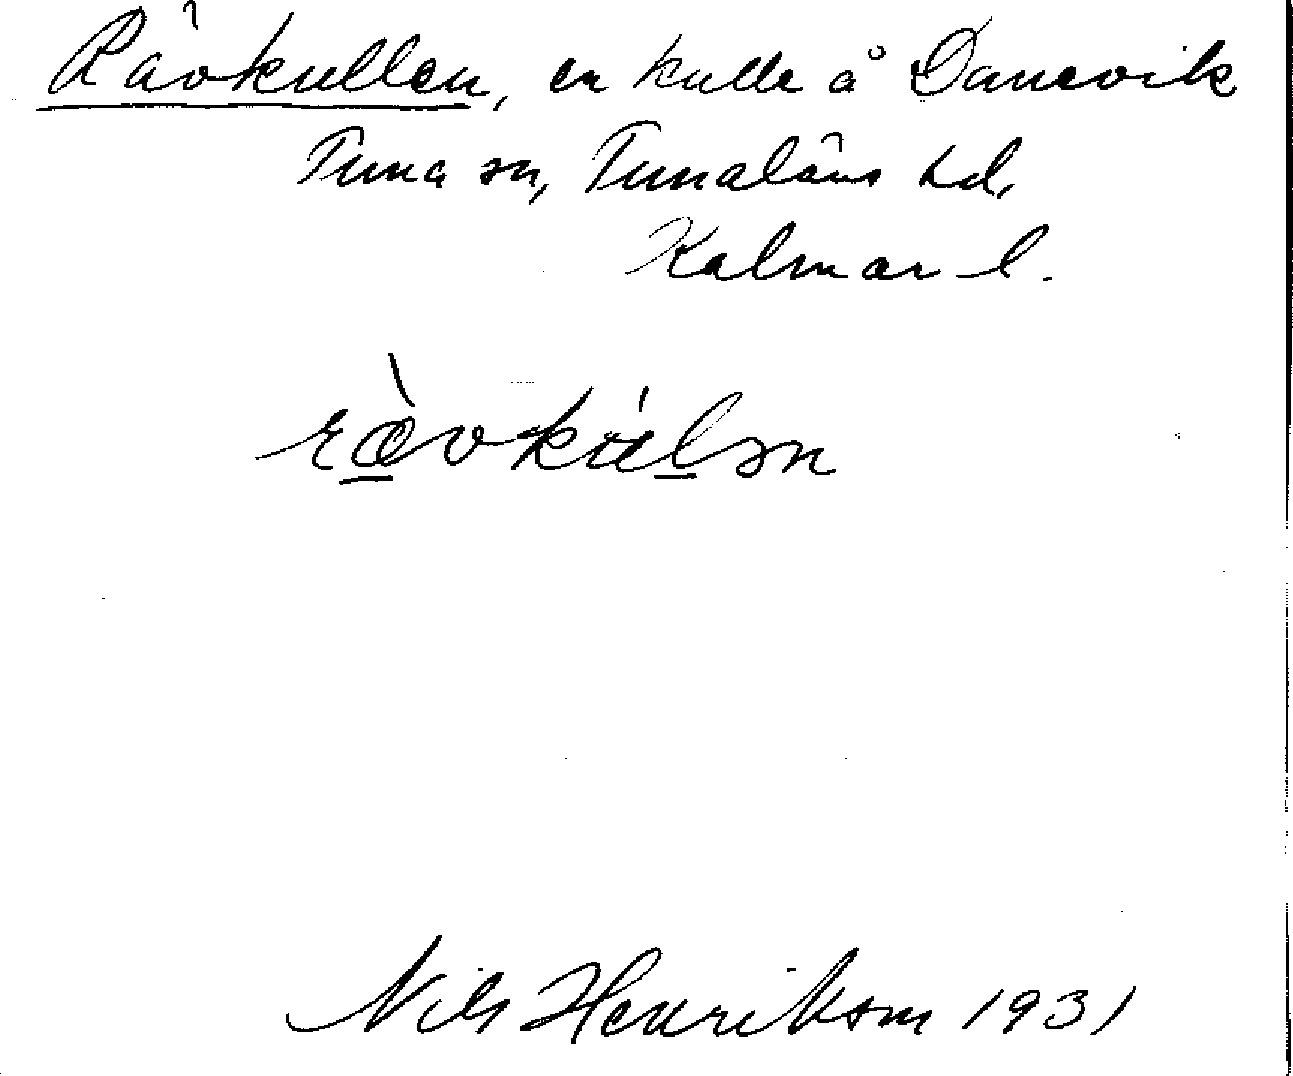 Rävkullen, en kulle å Danevik
Tuna sn, Tunaläns hd,
Kalmar l.
rævkulən
Nils Henrikson 1931